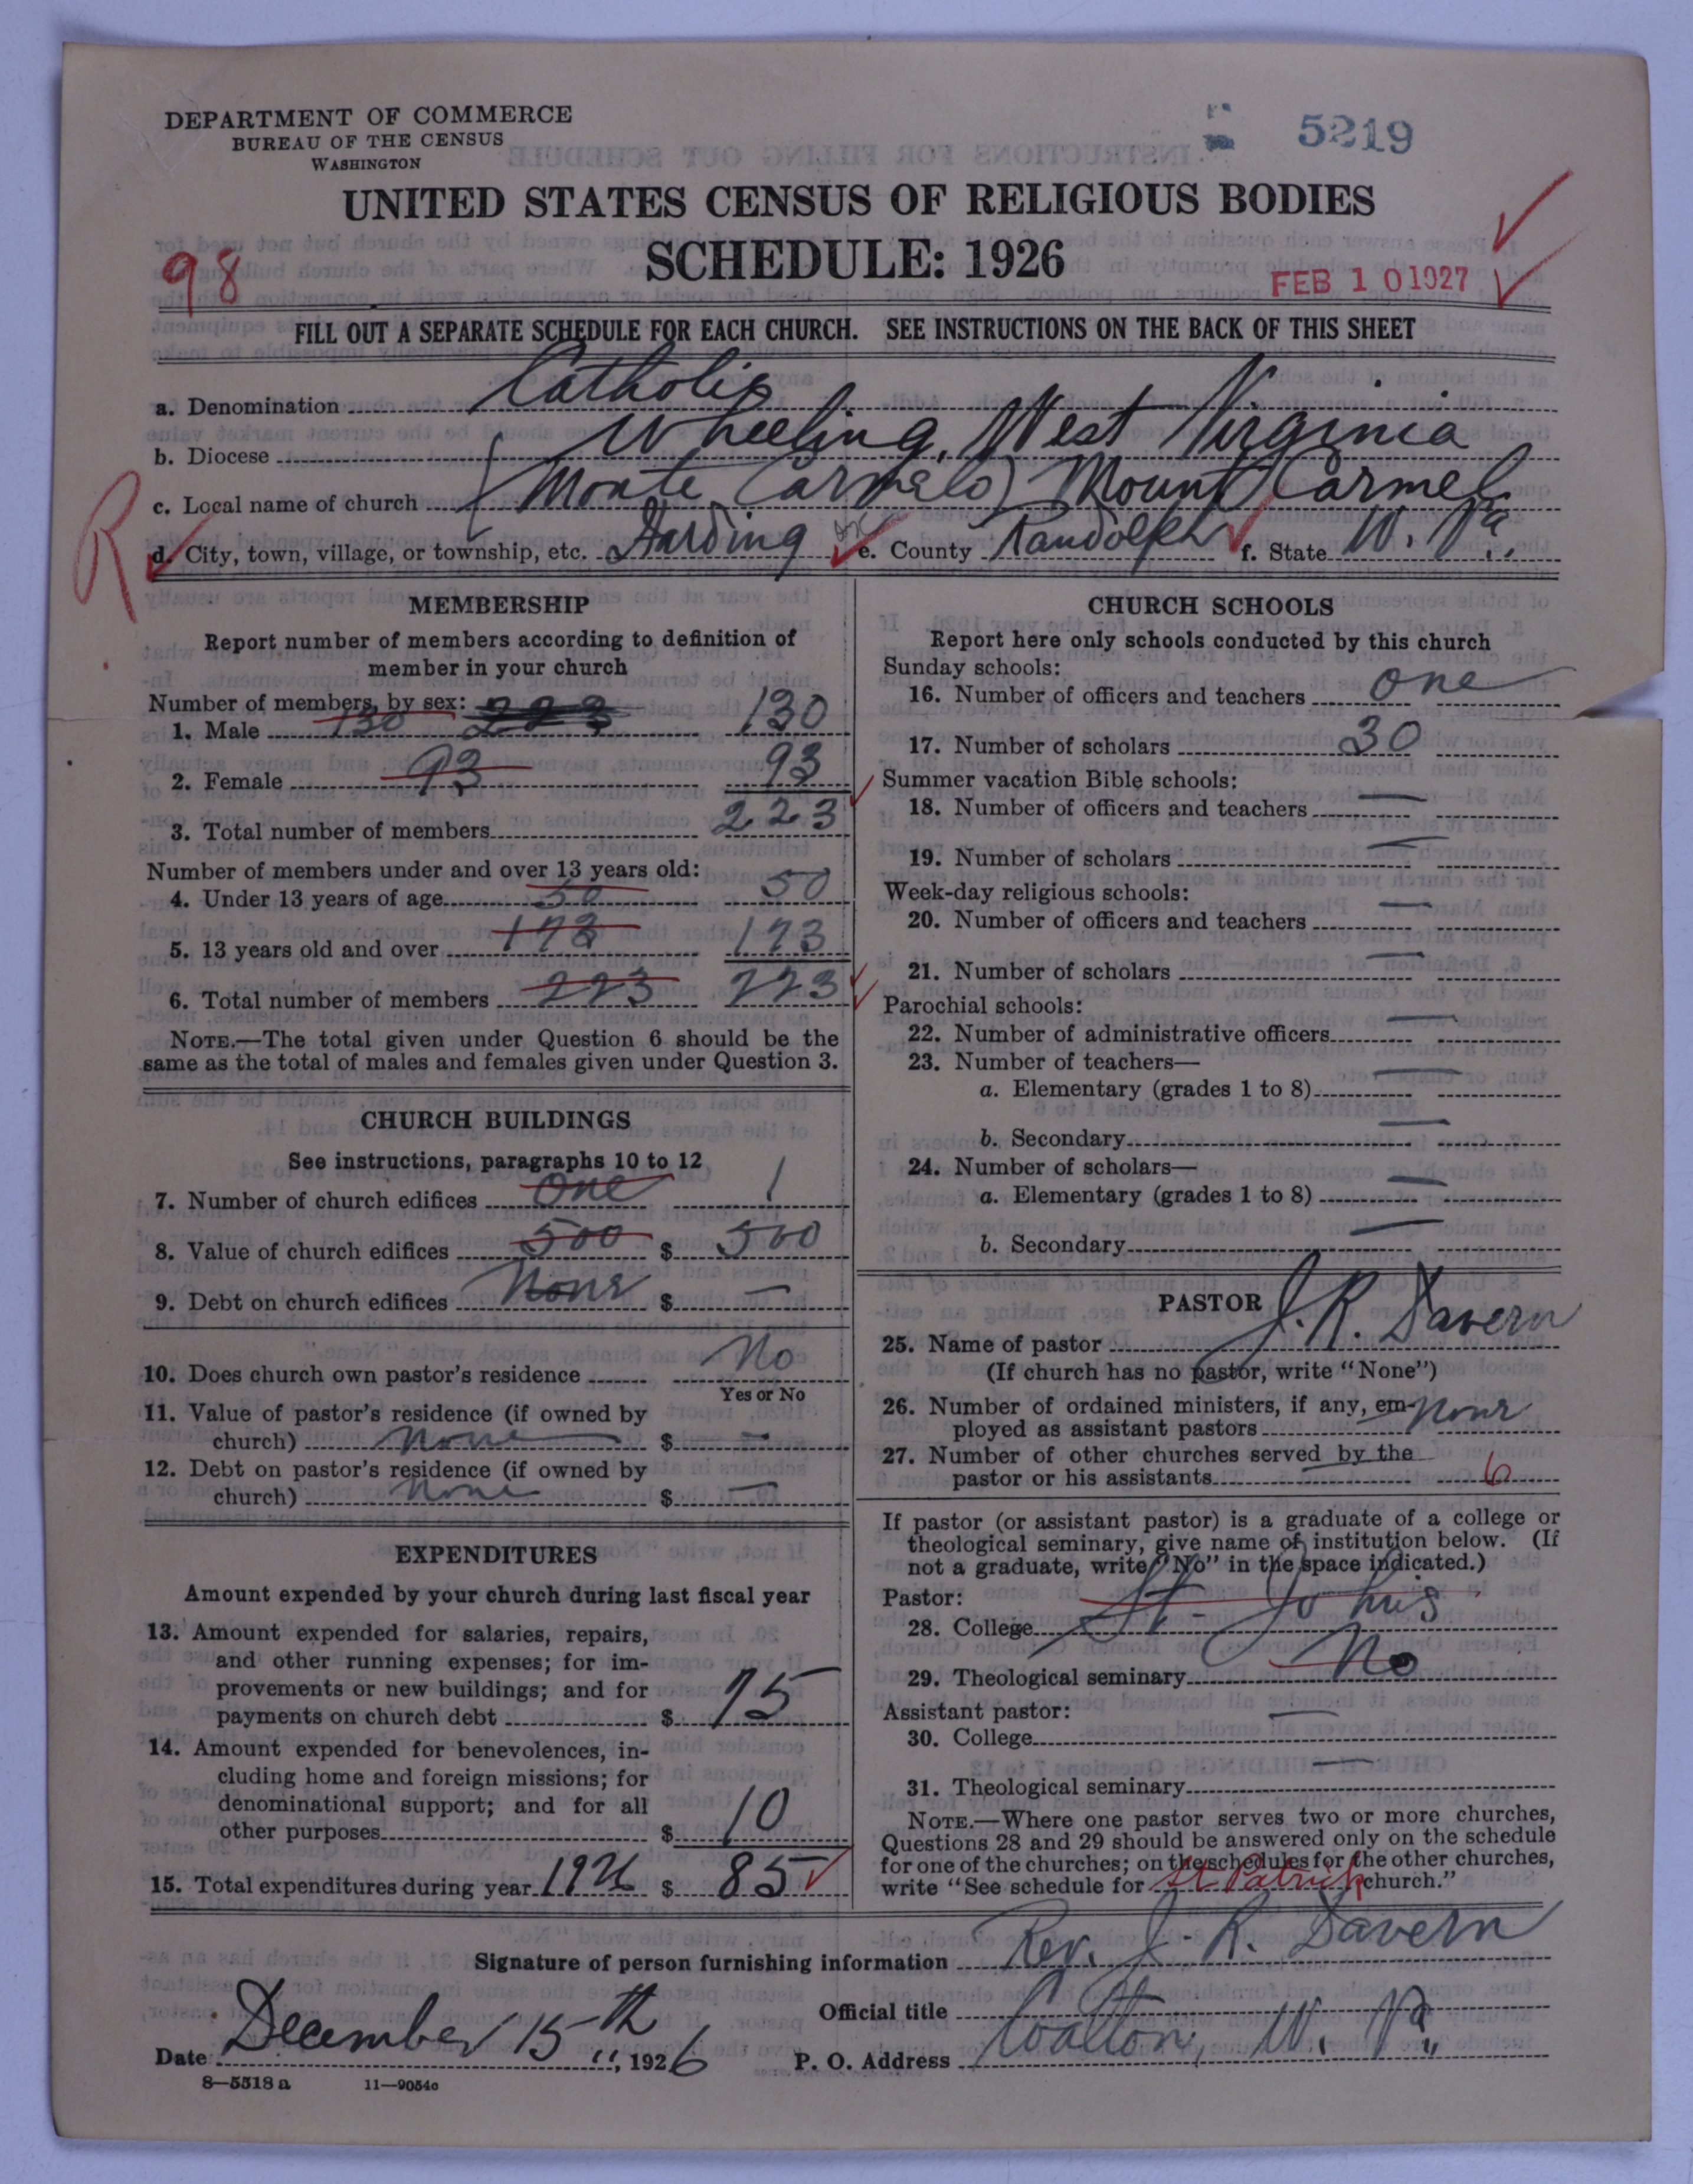 DEPARTMENT OF COMMERCE
BUREAU OF THE CENSUS
WASHINGTON
5219
UNITED STATES CENSUS OF RELIGIOUS BODIES
SCHEDULE: 1926
98
FEB 10 1927
FILL OUT A SEPARATE SCHEDULE FOR EACH CHURCH. SEE INSTRUCTIONS ON THE BACK OF THIS SHEET
a. Denomination Catholic
b. Diocese Wheeling, West Virginia
c. Local name of church (Monte Carmelo) Mount Carmel
R
d. City, town, village, or township, etc. Harding e. County Randolph f. State W. Va.
MEMBERSHIP
Report number of members according to definition of
member in your church
Number of members, by sex:
1. Male 130 223 130
2. Female 93 93
3. Total number of members 223
Number of members under and over 13 years old:
4. Under 13 years of age 50 50
5. 13 years old and over 173 173
6. Total number of members 223 223
NOTE.—The total given under Question 6 should be the
same as the total of males and females given under Question 3.
CHURCH BUILDINGS
See instructions, paragraphs 10 to 12
7. Number of church edifices One 1
8. Value of church edifices 500 $ 500
9. Debt on church edifices None $ —
10. Does church own pastor's residence No
Yes or No
11. Value of pastor's residence (if owned by
church) None $ —
12. Debt on pastor's residence (if owned by
church) None $ —
EXPENDITURES
Amount expended by your church during last fiscal year
13. Amount expended for salaries, repairs,
and other running expenses; for im-
provements or new buildings; and for
payments on church debt $ 75
14. Amount expended for benevolences, in-
cluding home and foreign missions; for
denominational support; and for all
other purposes $ 10
15. Total expenditures during year 1926 $ 85
CHURCH SCHOOLS
Report here only schools conducted by this church
Sunday schools:
16. Number of officers and teachers One
17. Number of scholars 30
Summer vacation Bible schools:
18. Number of officers and teachers —
19. Number of scholars —
Week-day religious schools:
20. Number of officers and teachers —
21. Number of scholars —
Parochial schools:
22. Number of administrative officers —
23. Number of teachers—
a. Elementary (grades 1 to 8) —
b. Secondary —
24. Number of scholars—
a. Elementary (grades 1 to 8) —
b. Secondary —
PASTOR
25. Name of pastor J. R. Davern
(If church has no pastor, write "None")
26. Number of ordained ministers, if any, em-
ployed as assistant pastors None
27. Number of other churches served by the
pastor or his assistants 6
If pastor (or assistant pastor) is a graduate of a college or
theological seminary, give name of institution below. (If
not a graduate, write "No" in the space indicated.)
Pastor:
28. College St. Johns
29. Theological seminary No
Assistant pastor:
30. College —
31. Theological seminary —
NOTE.—Where one pastor serves two or more churches,
Questions 28 and 29 should be answered only on the schedule
for one of the churches; on the schedules for the other churches,
write "See schedule for St Patrick church."
Signature of person furnishing information Rev. J. R. Davern
Official title
Date December 15th, 1926 P. O. Address Coalton, W. Va.
8—5518 a 11—9054c